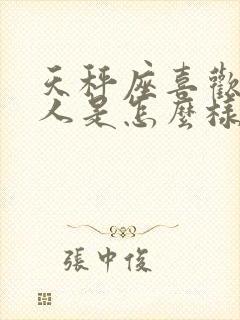 天秤座喜歡
人是怎麼樣
張中俊